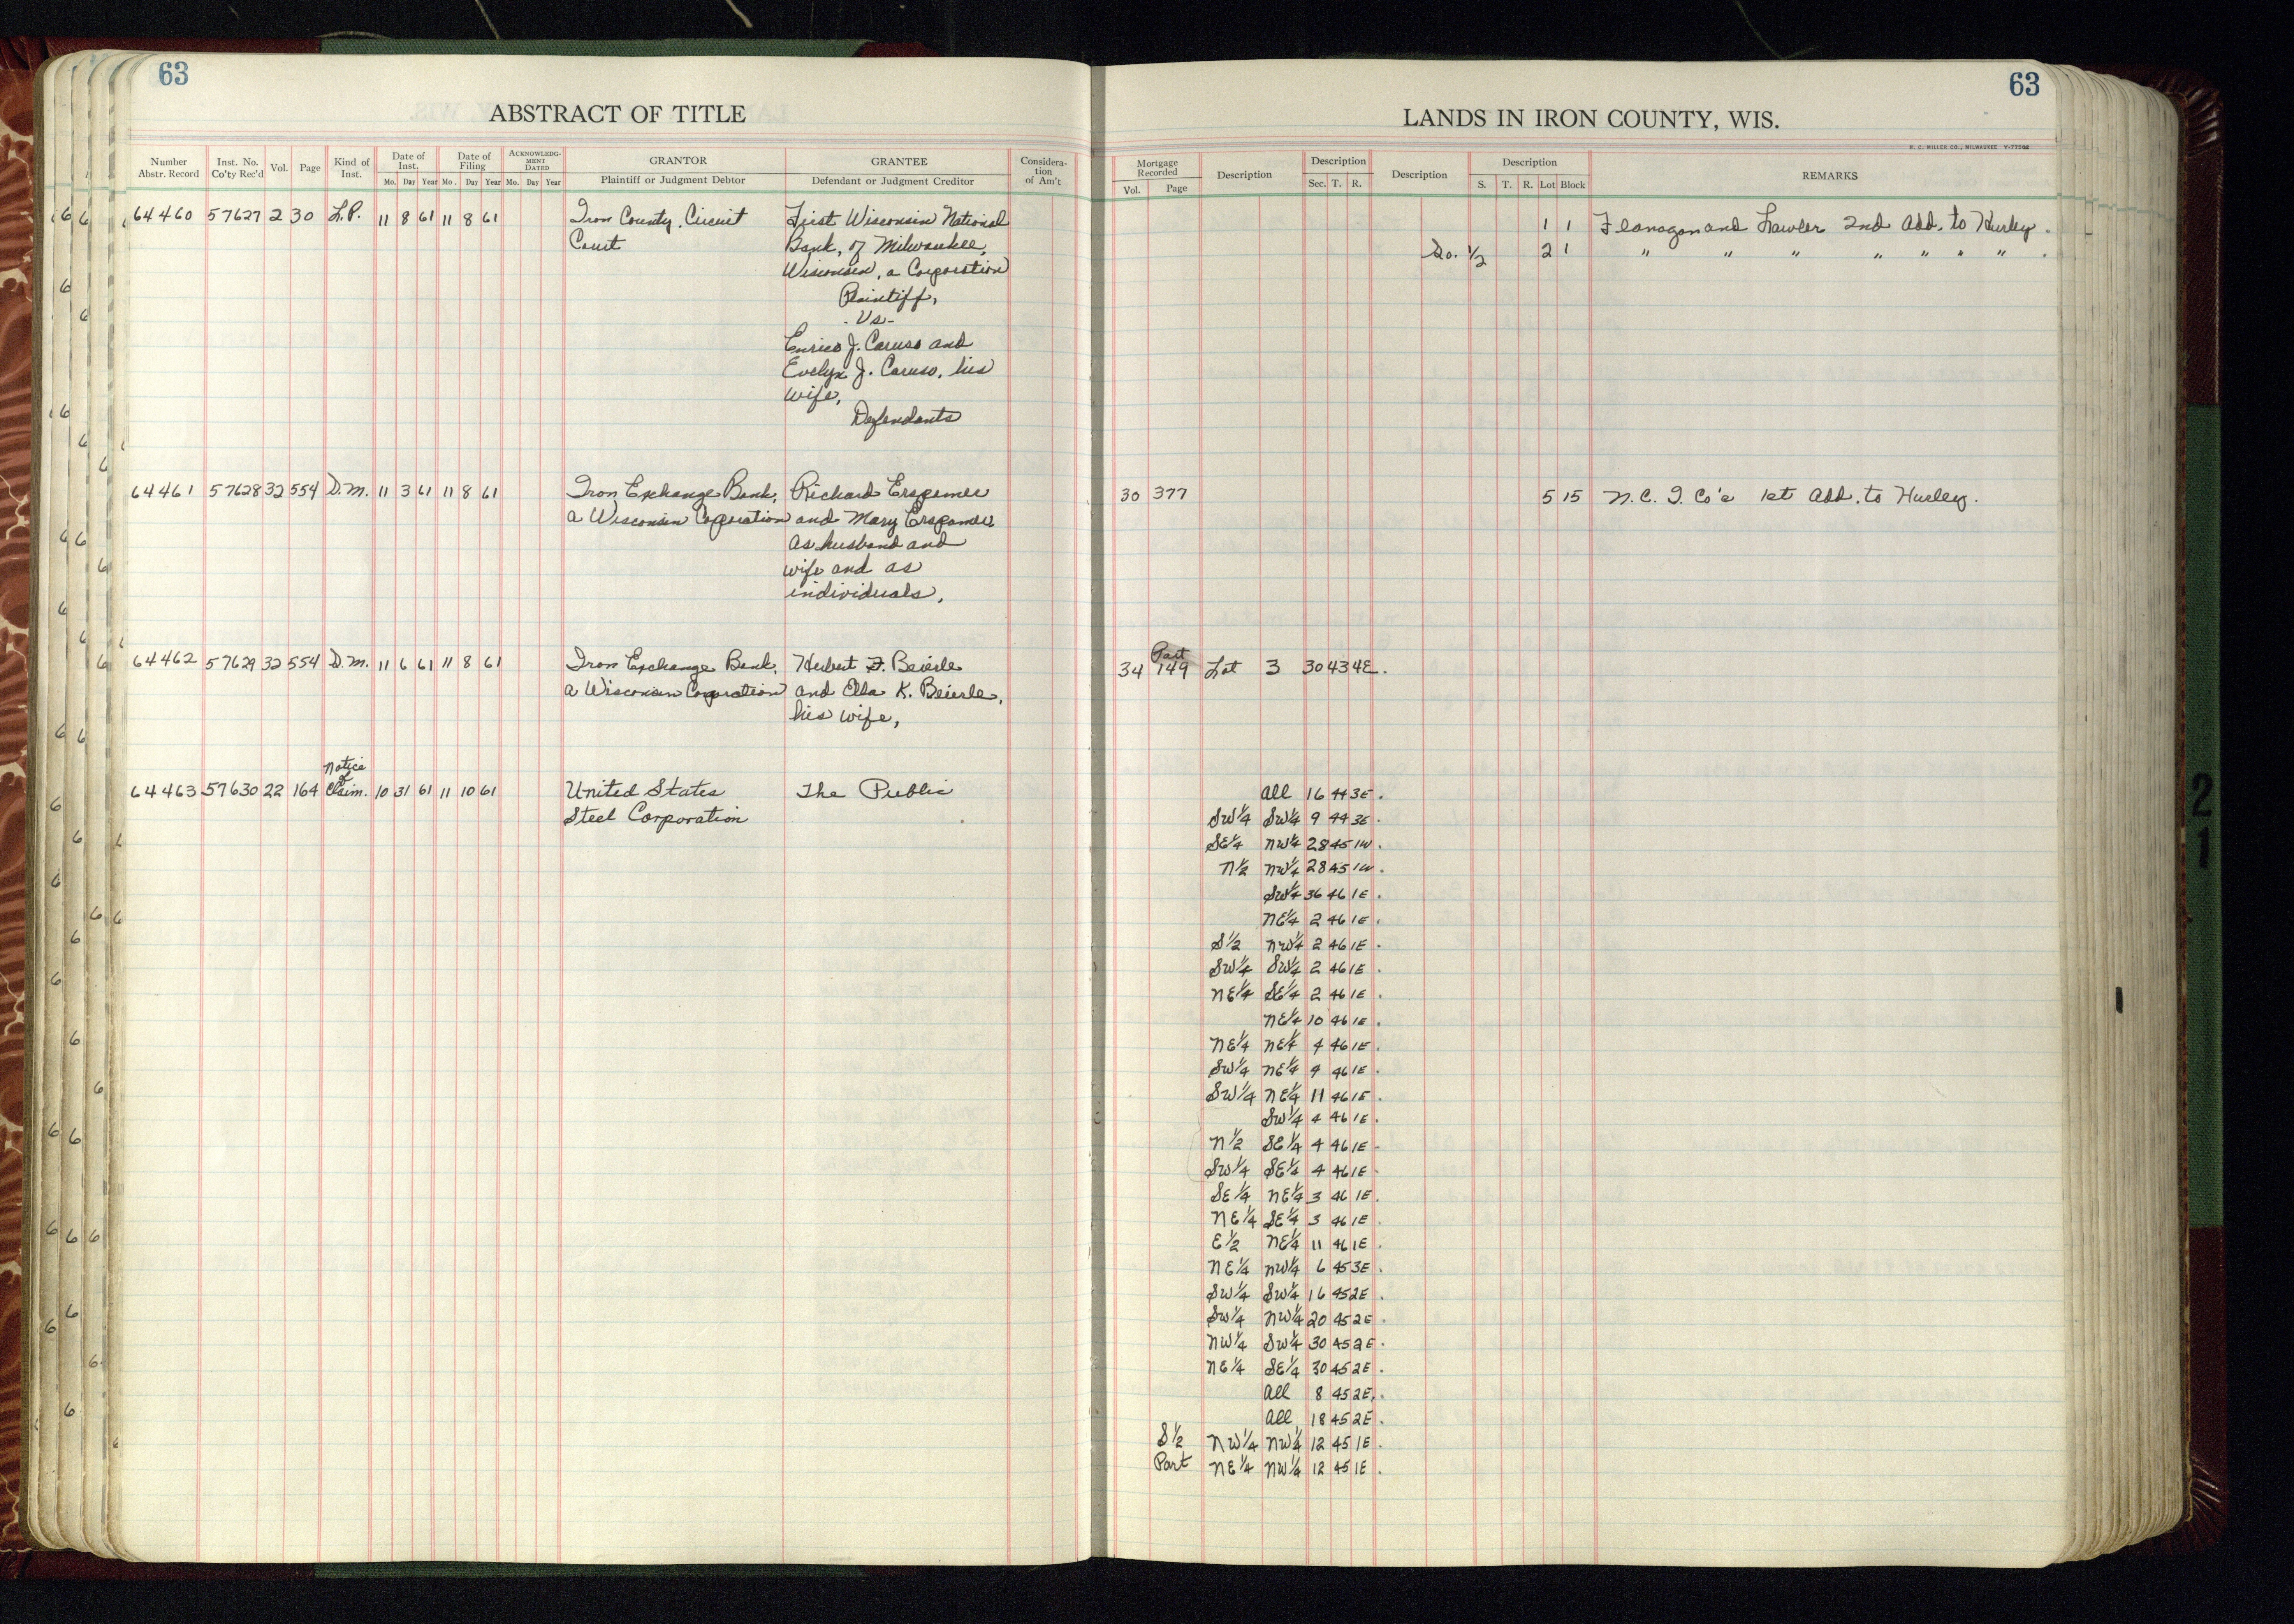 63
ABSTRACT OF TITLE
Number Abstr. Record
Inst. No. Co'ty Rec'd
Vol.
Page
Kind of Inst.
Date of Inst.
Mo. Day Year
Date of Filing
Mo. Day Year
ACKNOWLEDG-MENT DATED
Mo. Day Year
GRANTOR
Plaintiff or Judgment Debtor
GRANTEE
Defendant or Judgment Creditor
Considera-tion of Am't
64460 57627 2 30 L.P. 11 8 61 11 8 61 Iron County Circuit First Wisconsin National
Court Bank, of Milwaukee,
Wisconsin, a Corporation
Plaintiff,
- Vs -
Enrico J. Caruso and
Evelyn J. Caruso, his
wife,
Defendants
64461 57628 32 554 D.M. 11 3 61 11 8 61 Iron Exchange Bank, Richard Erspamer
a Wisconsin Corporation and Mary Erspamer
as husband and
wife and as
individuals,
64462 57629 32 554 D.M. 11 6 61 11 8 61 Iron Exchange Bank, Herbert F. Beierle
a Wisconsin Corporation and Ella K. Beierle,
his wife,
Notice
of
64463 57630 22 164 Claim. 10 31 61 11 10 61 United States The Public
Steel Corporation
63
LANDS IN IRON COUNTY, WIS.
H. C. MILLER CO., MILWAUKEE
Mortgage Recorded
Vol. Page
Description
Description
Sec. T. R.
Description
Description
S. T. R. Lot Block
REMARKS
1 1 Flanagan and Lawler 2nd Add. to Hurley.
So. 1/2 2 1 " " " " " " " .
30 377 5 15 N. C. I. Co's 1st Add. to Hurley.
Part
34 149 Lot 3 30 43 4E.
All 16 44 3E.
SW1/4 SW1/4 9 44 3E.
SE1/4 NW1/4 28 45 1W.
N1/2 NW1/4 28 45 1W.
SW1/4 36 46 1E.
NE1/4 2 46 1E.
S1/2 NW1/4 2 46 1E.
SW1/4 SW1/4 2 46 1E.
NE1/4 SE1/4 2 46 1E.
NE1/4 10 46 1E.
NE1/4 NE1/4 4 46 1E.
SW1/4 NE1/4 4 46 1E.
SW1/4 NE1/4 11 46 1E.
SW1/4 4 46 1E.
N1/2 SE1/4 4 46 1E.
SW1/4 SE1/4 4 46 1E.
SE1/4 NE1/4 3 46 1E.
NE1/4 SE1/4 3 46 1E.
E1/2 NE1/4 11 46 1E.
NE1/4 NW1/4 6 45 3E.
SW1/4 SW1/4 16 45 2E.
SW1/4 NW1/4 20 45 2E.
NW1/4 SW1/4 30 45 2E.
NE1/4 SE1/4 30 45 2E.
All 8 45 2E.
All 18 45 2E.
S1/2 NW1/4 NW1/4 12 45 1E.
Part NE1/4 NW1/4 12 45 1E.
2
1